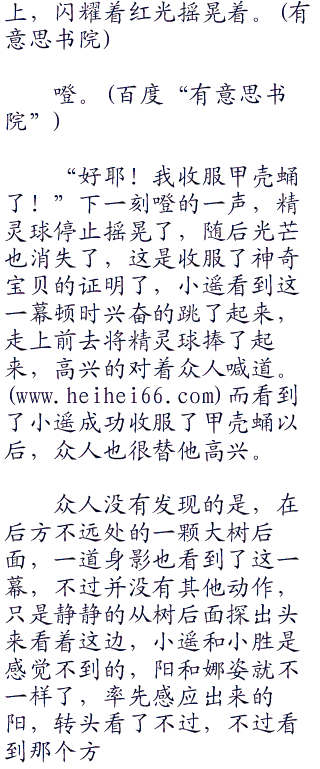 上，闪耀着红光摇晃着。(有
意思书院)
噔。(百度“有意思书
院”)
“好耶！我收服甲壳蛹
了！”下一刻噔的一声，精
灵球停止摇晃了，随后光芒
也消失了，这是收服了神奇
宝贝的证明了，小遥看到这
一幕顿时兴奋的跳了起来，
走上前去将精灵球捧了起
来，高兴的对着众人喊道。
(www.heihei66.com)而看到
了小遥成功收服了甲壳蛹以
后，众人也很替他高兴。
众人没有发现的是，在
后方不远处的一颗大树后
面，一道身影也看到了这一
幕，不过并没有其他动作，
只是静静的从树后面探出头
来看着这边，小遥和小胜是
感觉不到的，阳和娜姿就不
一样了，率先感应出来的
阳，转头看了不过，不过看
到那个方